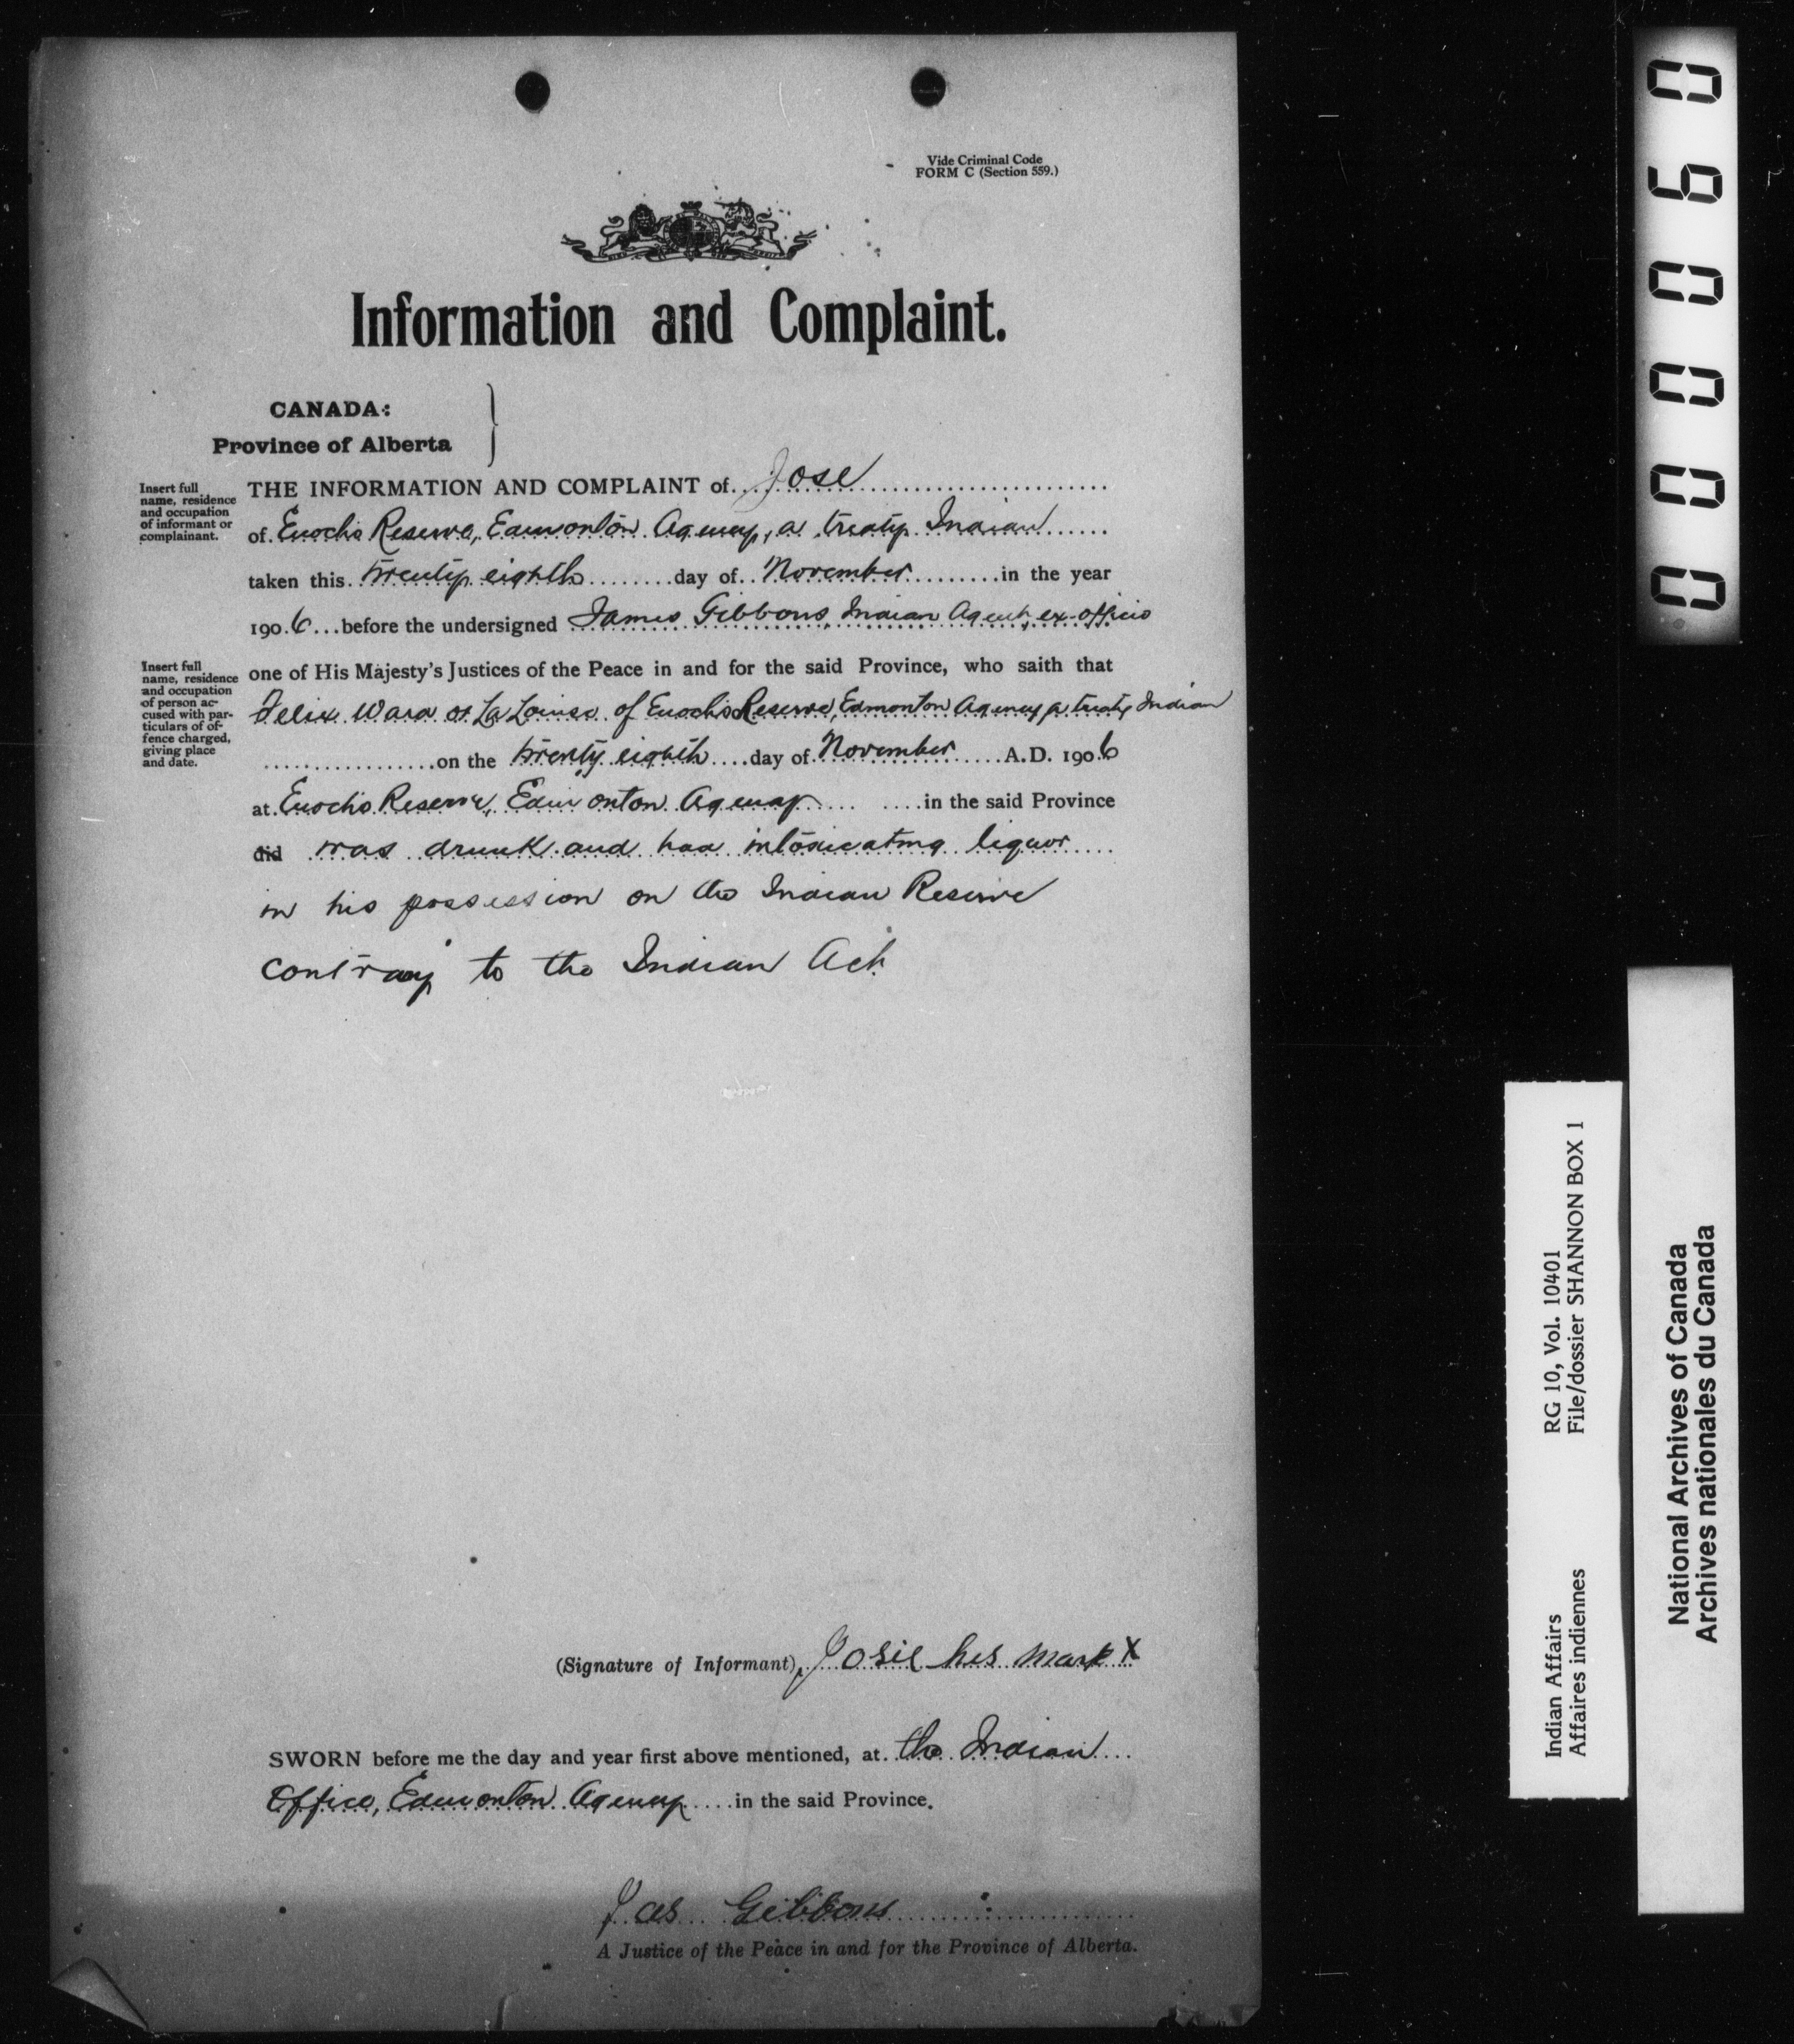 Vide Criminal Code
FORM C (Section 559.)
Information and Complaint.
CANADA:
Province of Alberta
Insert full
name, residence
and occupation
of informant or
complainant.
THE INFORMATION AND COMPLAINT of Jose
of Enochs Reserve, Edmonton Agency, a treaty Indian
taken this twenty eighth day of November in the year
1906 before the undersigned James Gibbons, Indian Agent, ex-officio
Insert full
name, residence
and occupation
of person ac-
cused with par-
ticulars of of-
fence charged,
giving place
and date.
one of His Majesty's Justices of the Peace in and for the said Province, who saith that
Felix Ward or La Louise of Enochs Reserve, Edmonton Agency a treaty Indian
on the twenty eighth day of November A.D. 1906
at Enochs Reserve, Edmonton Agency in the said Province
did was drunk and had intoxicating liquor
in his possession on the Indian Reserve
contrary to the Indian Act
(Signature of Informant) Josie his mark X
SWORN before me the day and year first above mentioned, at the Indian
Office, Edmonton Agency in the said Province.
Jas Gibbons
A Justice of the Peace in and for the Province of Alberta.
000060
Indian Affairs RG 10, Vol. 10401
Affaires indiennes File/dossier SHANNON BOX 1
National Archives of Canada
Archives nationales du Canada